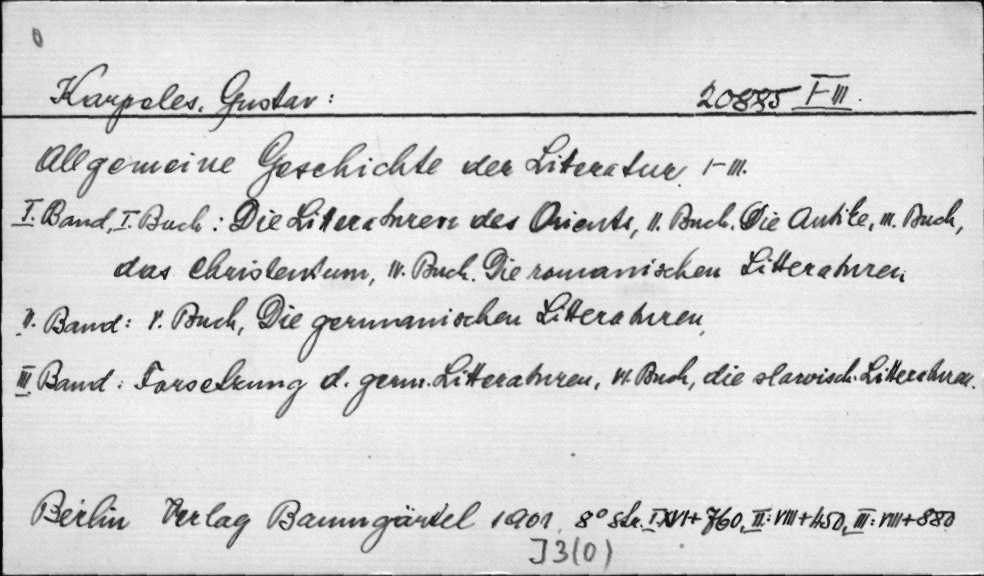 0
Karpeles, Gustav: 20885 I-III.
Allgemeine Geschichte der Literatur. I-III.
I. Band, I. Buch: Die Litteraturen des Orients, II. Buch. Die Antike, III. Buch,
das Christentum, IV. Buch. Die romanischen Litteraturen
II. Band: V. Buch, Die germanischen Litteraturen,
III. Band: Forsetzung d. germ. Litteraturen, VI. Buch, die slavisch. Litteraturen.
Berlin Verlag Baumgärtel 1901. 8° Str. I XVI+760, II: VIII+450, III: VIII+880
J3(0)